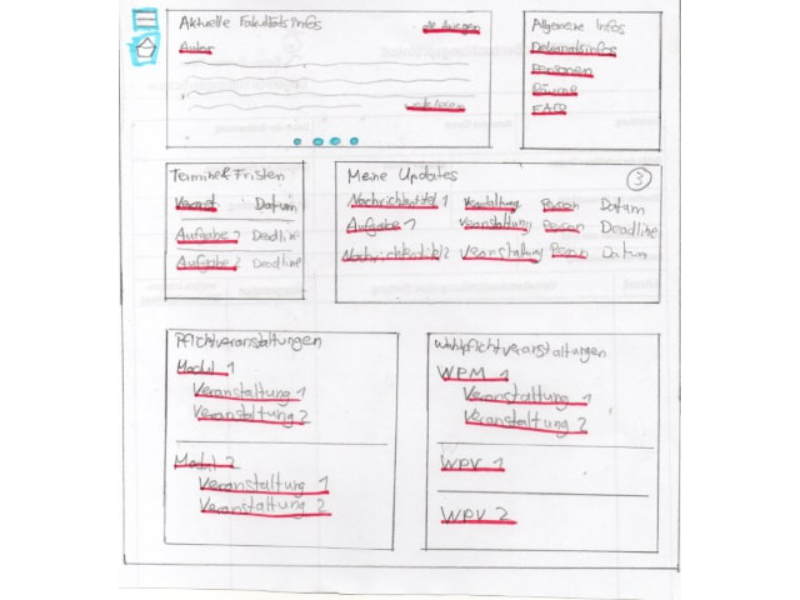 Aktuelle Fakultätsinfos
alle Anzeigen
Autor
weiterlesen
Allgemeine Infos
Dekanatsinfos
Personen
Räume
FAQ
Termine & Fristen
Veranst Datum
Aufgabe 1 Deadline
Aufgabe 2 Deadline
Meine Updates 3
Nachrichtentitel 1 Veranstaltung Person Datum
Aufgabe 1 Veranstaltung Person Deadline
Nachrichtentitel 2 Veranstaltung Person Datum
Pflichtveranstaltungen
Modul 1
Veranstaltung 1
Veranstaltung 2
Modul 2
Veranstaltung 1
Veranstaltung 2
Wahlpflichtveranstaltungen
WPM 1
Veranstaltung 1
Veranstaltung 2
WPV 1
WPV 2